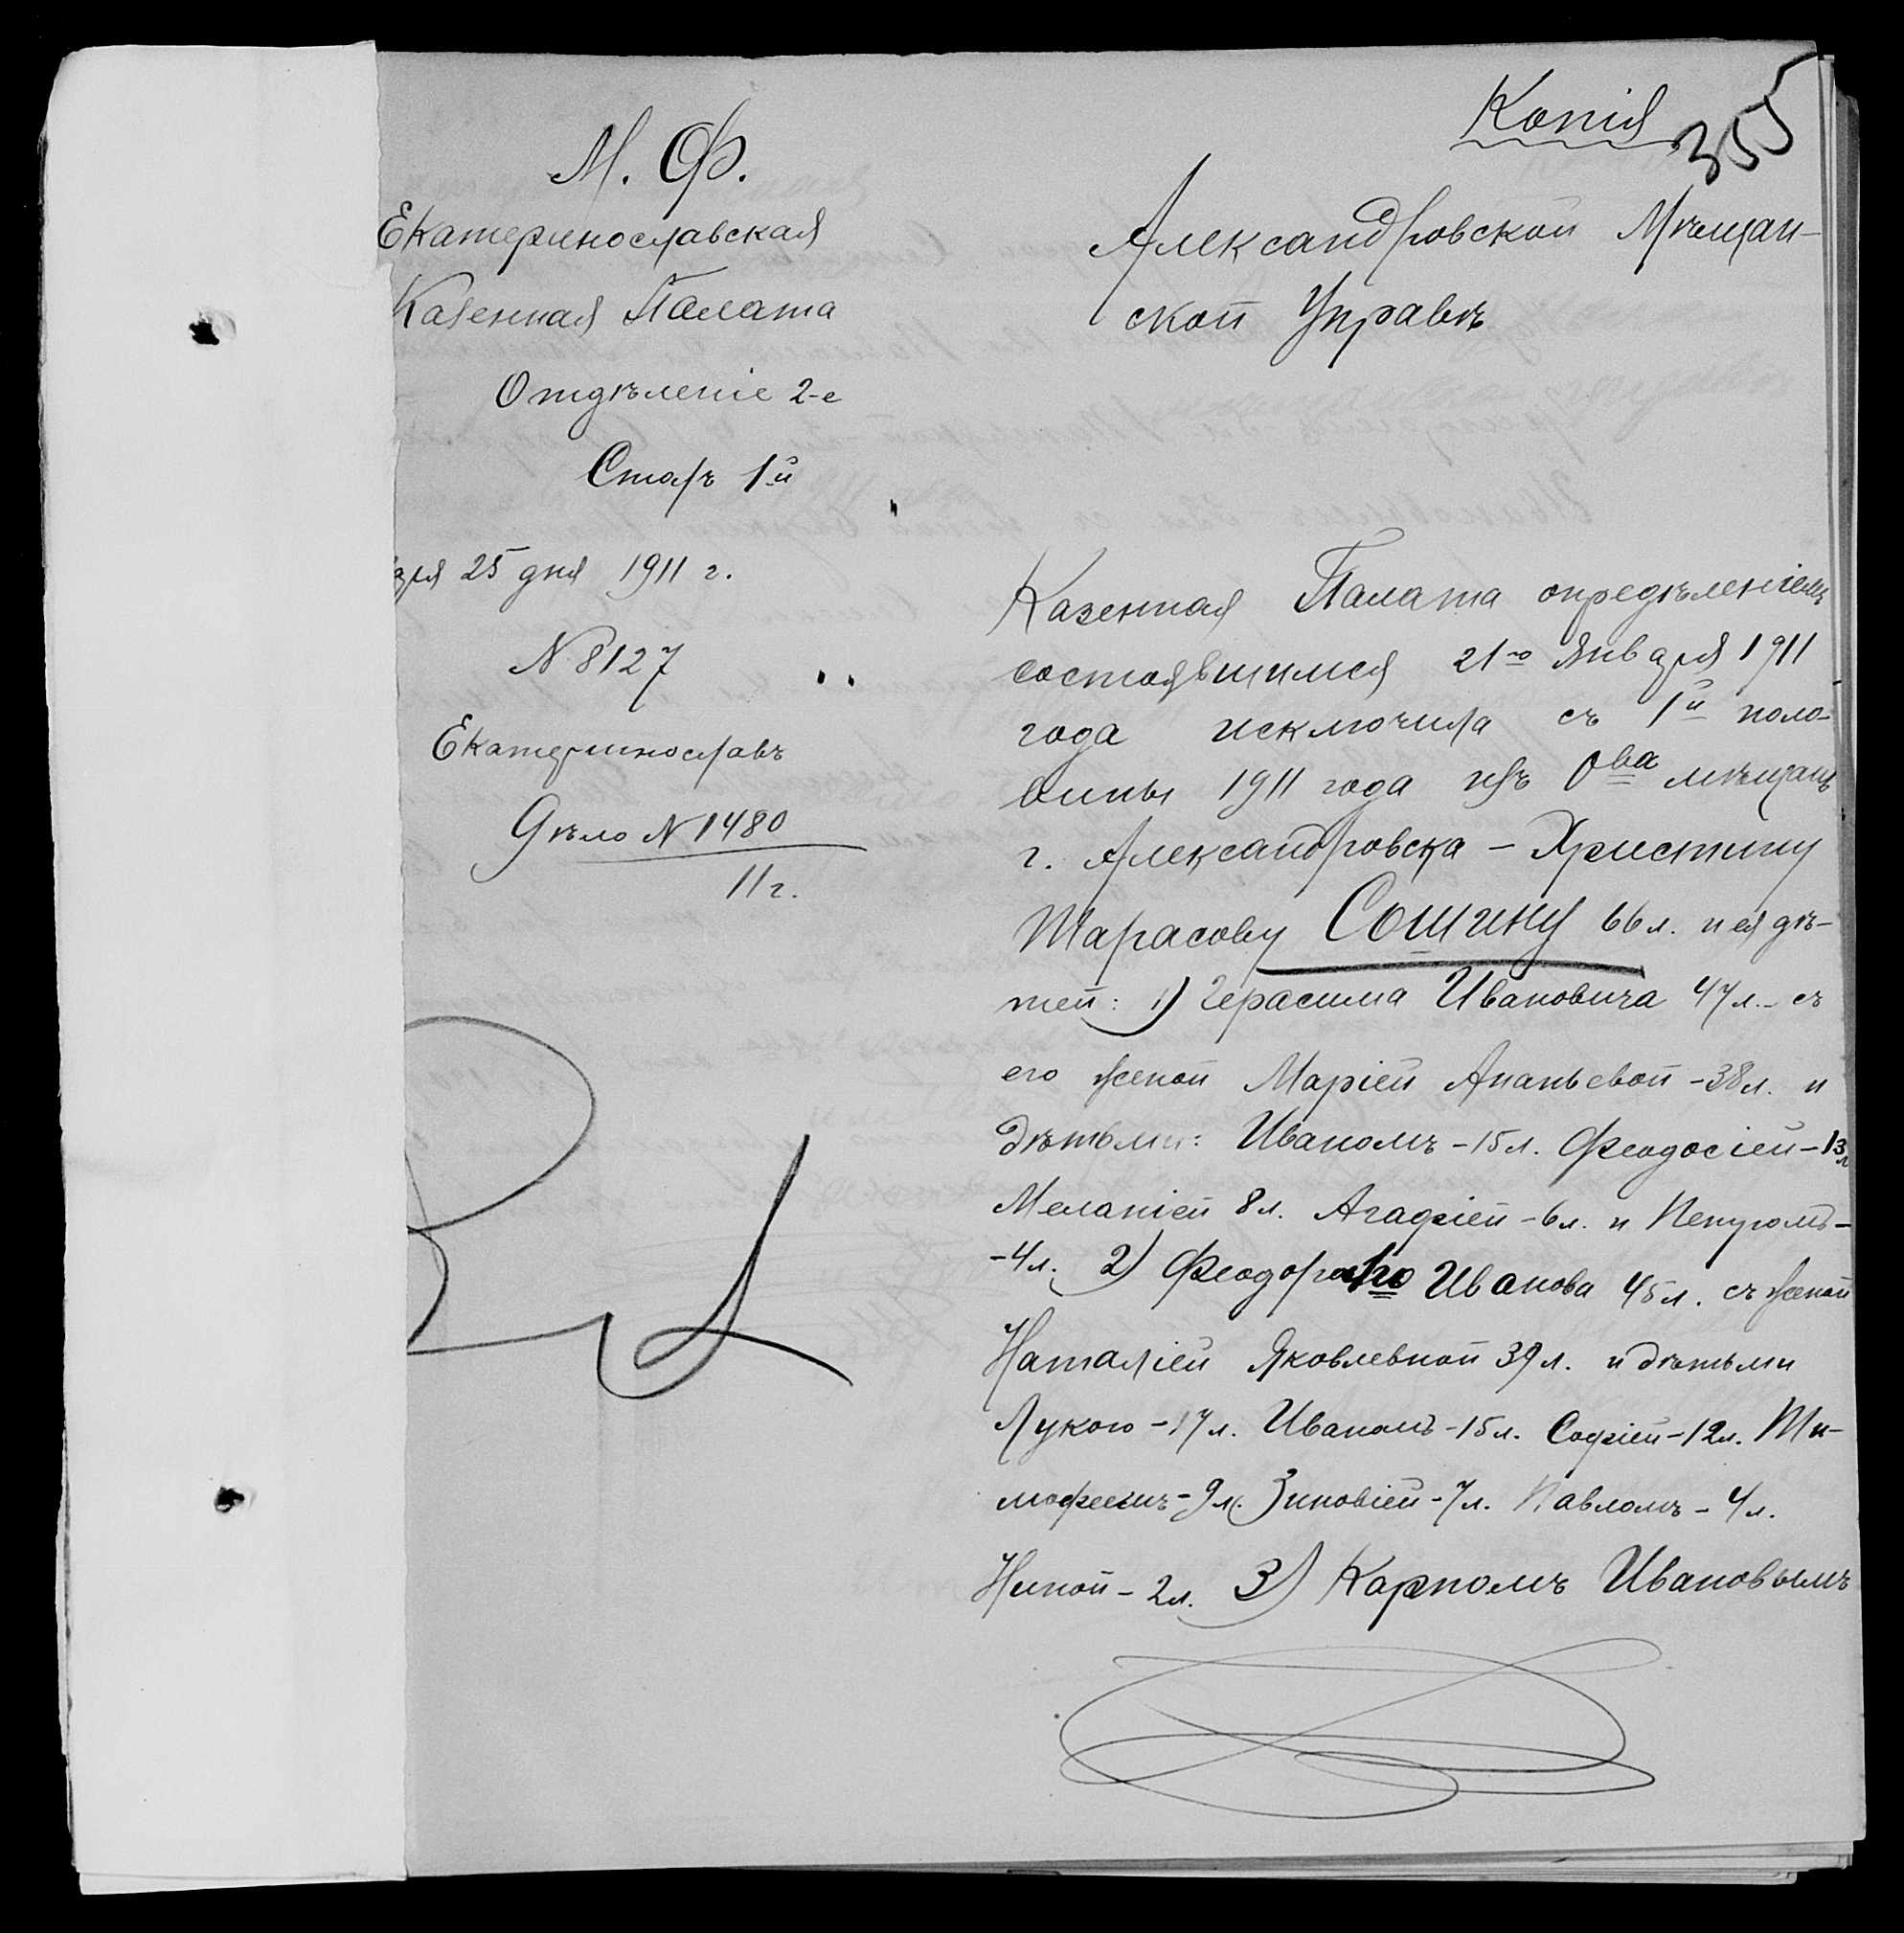 Копія
355
М. Ф.
Екатеринославская
Казенная Палата
Отдѣленіе 2-е
Столъ 1й
аря 25 дня 1911 г.
N 8127
Екатеринославъ
Дѣло N 1480
11 г.
Александровской Мѣщан-
ской Управѣ
Казенная Палата опредѣленіемъ
состоявшимся 21го Января 1911
года исключила съ 1й поло-
вины 1911 года изъ Ова мѣщанъ
г. Александровска - Христину
Тарасову Сошину 66 л. и ея дѣ-
тей: 1) Герасима Ивановича 47 л. - съ
его женой Маріей Ананьевой - 38 л. и
дѣтьми: Иваномъ - 15 л. Феодосіей - 13 л
Меланіей 8 л. Агафіей - 6 л. и
- 4 л. 2) Иванова 45 л. съ женой
Наталіей Яковлевной 39 л. и дѣтьми
Лукою - 17 л. Иваномъ - 15 л. Софіей - 12 л. Ти-
мофеемъ - 9 л. Зиновіей - 7 л. Павломъ - 4 л.
Ниной - 2 л. 3) Карпомъ Ивановымъ